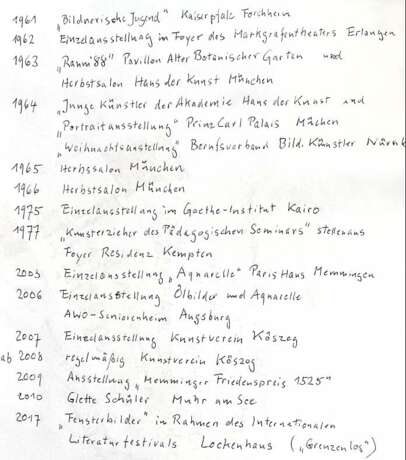 1961 „Bildnerische Jugend" Kaiserpfalz Forchheim
1962 Einzelausstellung im Foyer des Markgrafentheaters Erlangen
1963 „Ranni'88" Pavillon Alter Botanischer Garten und
Herbstsalon Haus der Kunst München
1964 „Junge Künstler der Akademie Haus der Kunst und
„Portraitausstellung" Prinz Carl Palais Müchen
„Weihnachtsausstellung" Berufsverband Bild. Künstler Nürnb
1965 Herbssalon München
1966 Herbstsalon München
1975 Einzelausstellung im Goethe-Institut Kairo
1977 „Kunsterzieher des Pädagogischen Seminars"
Foyer Residenz Kempten
2003 Einzelausstellung „Aquarelle" Paris Haus Memmingen
2006 Einzelausstellung Ölbilder und Aquarelle
AWO-Seniorenheim Augsburg
2007 Einzelausstellung Kunstverein Köszeg
ab 2008 regelmäßig Kunstverein Köszeg
2009 Ausstellung „Memminger Friedenspreis 1525"
2010 Glette Schüler Muhr am See
2017 „Fensterbilder" in Rahmen des Internationalen
Literaturfestivals Lockenhaus („Grenzenlos")